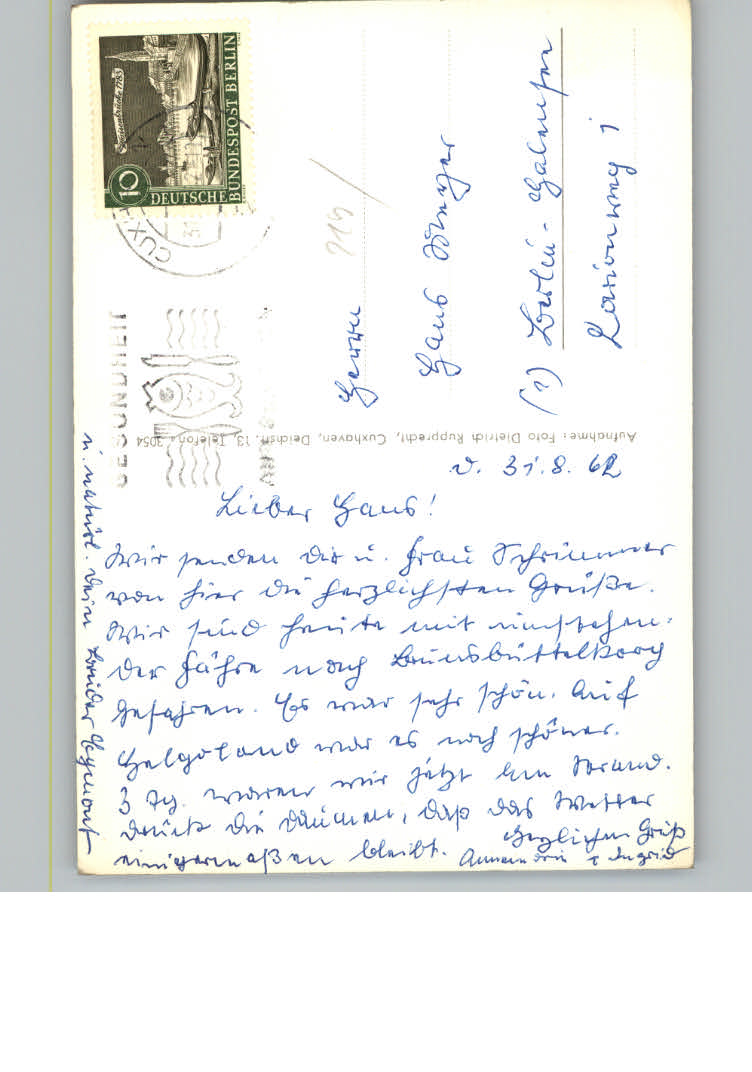 Mauerbrücke 1783
10
DEUTSCHE
BUNDESPOST BERLIN
CUXH
GESUNDHEIT
219
Herrn
Hans
(1) Berlin-Halensee
1
Aufnahme: Foto Dietrich Rupprecht, Cuxhaven, Deichstr. 13, Telefon: 3054
d. 31.8.62
Lieber Hans!
Wir senden Dir u. Frau Schrimmer
von hier die herzlichsten Grüße.
Wir sind heute mit umstehen-
der Fähre nach Brunsbüttelkoog
gefahren. Es war sehr schön. Auf
Helgoland war es noch schöner.
3 Tg. waren wir jetzt am Strand.
Drückt die Daumen, daß das Wetter
einigermaßen bleibt. Herzlichen Gruß
Annemarie u. Ingrid
u. natürl. Dein Bruder Egmont